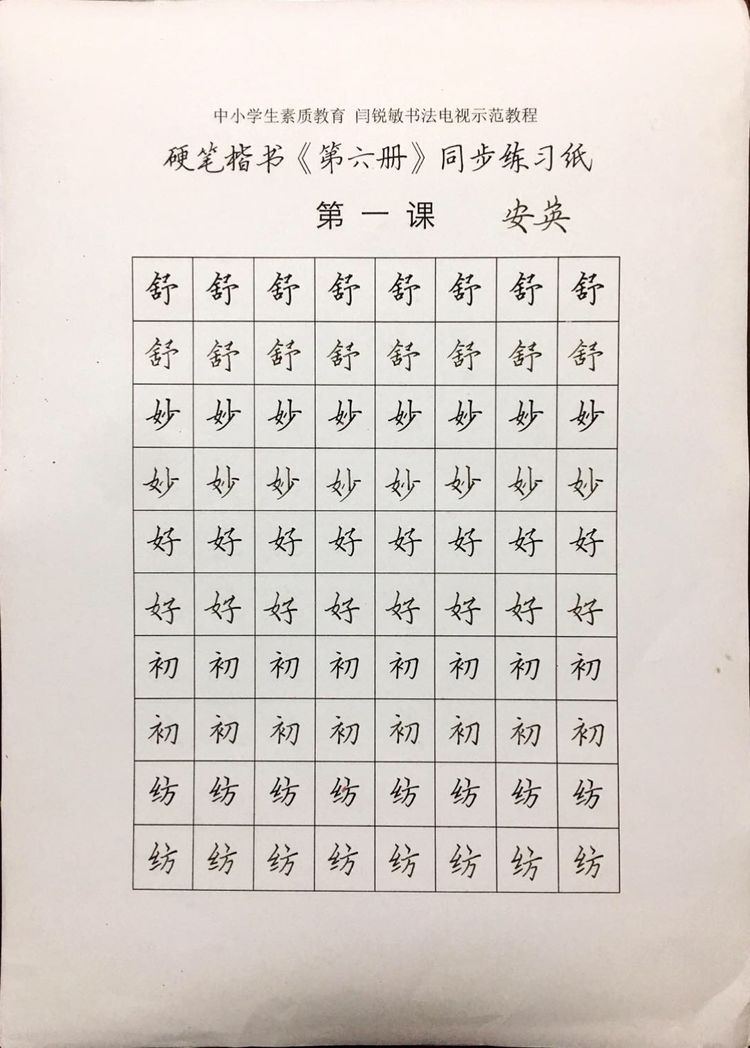 中小学生素质教育 闫锐敏书法电视示范教程
硬笔楷书《第六册》同步练习纸
第一课 安英
舒 舒 舒 舒 舒 舒 舒 舒
舒 舒 舒 舒 舒 舒 舒 舒
妙 妙 妙 妙 妙 妙 妙 妙
妙 妙 妙 妙 妙 妙 妙 妙
好 好 好 好 好 好 好 好
好 好 好 好 好 好 好 好
初 初 初 初 初 初 初 初
初 初 初 初 初 初 初 初
纺 纺 纺 纺 纺 纺 纺 纺
纺 纺 纺 纺 纺 纺 纺 纺